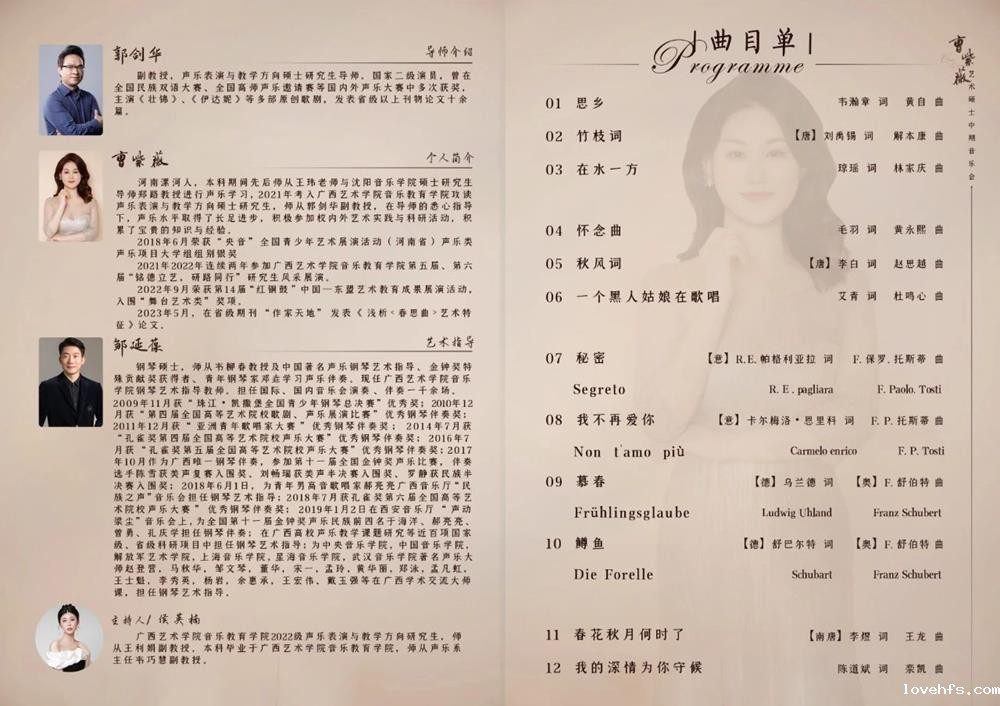 郭剑华
导师介绍
副教授，声乐表演与教学方向硕士研究生导师，国家二级演员，曾在
全国民族双语大赛、全国高师声乐邀请赛等国内外声乐大赛中多次获奖，
主演《壮锦》、《伊达妮》等多部原创歌剧，发表省级以上刊物论文十余
篇。
曹紫薇
个人简介
河南漯河人，本科期间先后师从王玮老师与沈阳音乐学院硕士研究生
导师郑路教授进行声乐学习，2021年考入广西艺术学院音乐教育学院攻读
声乐表演与教学方向硕士研究生，师从郭剑华副教授，在导师的悉心指导
下，声乐水平取得了长足进步，积极参加校内外艺术实践与科研活动，积
累了宝贵的知识与经验。
2018年6月荣获“央音”全国青少年艺术展演活动（河南省）声乐类
声乐项目大学组组别银奖
2021年2022年连续两年参加广西艺术学院音乐教育学院第五届、第六
届“铭德立艺，研路同行”研究生风采展演。
2022年9月荣获第14届“红铜鼓”中国—东盟艺术教育成果展演活动，
入围“舞台艺术类”奖项。
2023年5月，在省级期刊“作家天地”发表《浅析<春思曲>艺术特
征》论文。
邹延葆
艺术指导
钢琴硕士，师从韦柳春教授及中国著名声乐钢琴艺术指导、金钟奖特
殊贡献奖获得者、青年钢琴家邓垚学习声乐伴奏。现任广西艺术学院音乐
学院钢琴艺术指导教师。担任国际、国内音乐会演奏、伴奏一千余场。
2009年11月获“珠江·凯撒堡全国青少年钢琴总决赛”优秀奖；2010年12
月获“第四届全国高等艺术院校歌剧、声乐展演比赛”优秀钢琴伴奏奖；
2011年12月获“亚洲青年歌唱家大赛”优秀钢琴伴奏奖；2014年7月获
“孔雀奖第四届全国高等艺术院校声乐大赛”优秀钢琴伴奏奖；2016年7
月获“孔雀奖第五届全国高等艺术院校声乐大赛”优秀钢琴伴奏奖；2017
年10月作为广西唯一钢琴伴奏，参加第十一届全国金钟奖声乐比赛，伴奏
选手陈雪获美声复赛入围奖、刘畅瑞获美声半决赛入围奖、罗静获民族半
决赛入围奖；2018年6月1日，为青年男高音歌唱家郝亮亮广西音乐厅“民
族之声”音乐会担任钢琴艺术指导；2018年7月获孔雀奖第六届全国高等艺
术院校声乐大赛”优秀钢琴伴奏奖；2019年1月2日在西安音乐厅“声动
梁尘”音乐会上，为全国第十一届金钟奖声乐民族前四名于海洋、郝亮亮、
曾勇、孔庆学担任钢琴伴奏；在广西高校声乐教学课题研究等近百项国家
级、省级科研项目中担任钢琴艺术指导；为中央音乐学院，中国音乐学院，
解放军艺术学院，上海音乐学院，星海音乐学院，武汉音乐学院著名声乐大
师赵登营，马秋华，邹文琴，董华，宋一，孟玲，黄华丽，郑泳，孟凡虹，
王士魁，李秀英，杨岩，余惠承，王宏伟、戴玉强等在广西学术交流大师
课，担任钢琴艺术指导。
主持人/侯英楠
广西艺术学院音乐教育学院2022级声乐表演与教学方向研究生，师
从王利娟副教授，本科毕业于广西艺术学院音乐教育学院，师从声乐系
主任韦巧慧副教授。
曲目单
Programme
曹紫薇
艺术硕士中期音乐会
01 思乡 韦瀚章 词 黄自 曲
02 竹枝词 【唐】刘禹锡 词 解本康 曲
03 在水一方 琼瑶 词 林家庆 曲
04 怀念曲 毛羽 词 黄永熙 曲
05 秋风词 【唐】李白 词 赵思越 曲
06 一个黑人姑娘在歌唱 艾青 词 杜鸣心 曲
07 秘密 【意】R.E.帕格利亚拉 词 F.保罗.托斯蒂 曲
Segreto R. E . pagliara F. Paolo. Tosti
08 我不再爱你 【意】卡尔梅洛·恩里科 词 F. P. 托斯蒂 曲
Non t'amo più Carmelo enrico F. P. Tosti
09 慕春 【德】乌兰德 词 【奥】F. 舒伯特 曲
Frühlingsglaube Ludwig Uhland Franz Schubert
10 鳟鱼 【德】舒巴尔特 词 【奥】F. 舒伯特 曲
Die Forelle Schubart Franz Schubert
11 春花秋月何时了 【南唐】李煜 词 王龙 曲
12 我的深情为你守候 陈道斌 词 栾凯 曲
lovehfs.com